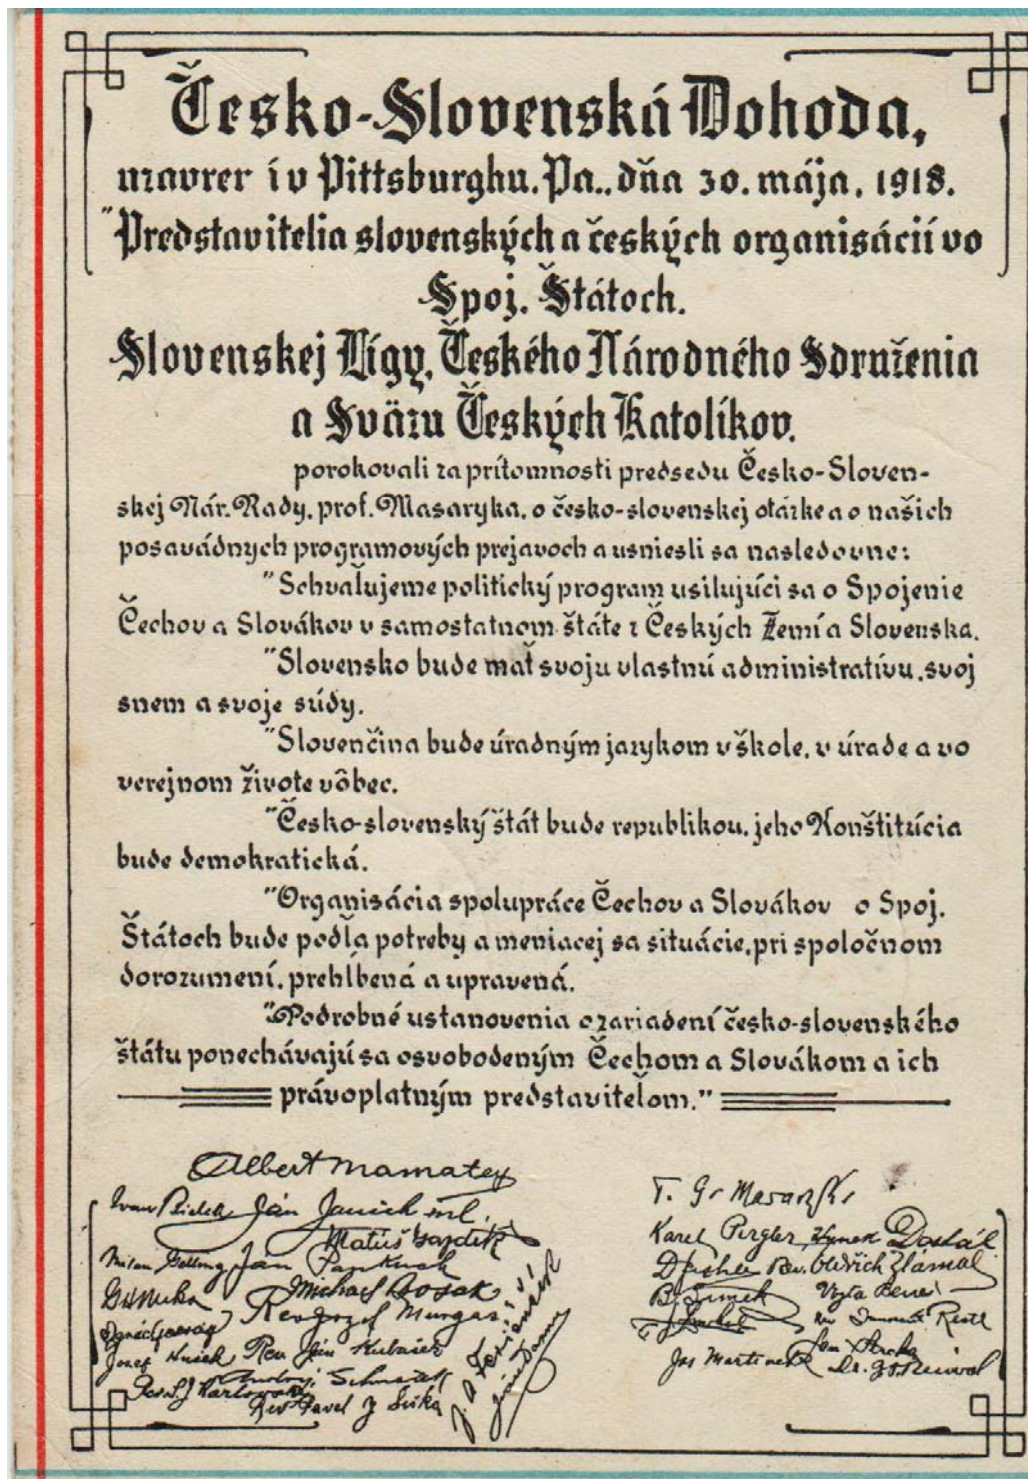 Česko-Slovenská Dohoda,
uzavrer iv Pittsburghu, Pa., dňa 30. mája, 1918.
"Predstavitelia slovenských a českých organisácií vo
Spoj. Štátoch.
Slovenskej Lígy, Českého Národného Sdruženia
a Sväzu Českých Katolíkov,
porokovali za prítomnosti predsedu Česko-Sloven-
skej Nár. Rady, prof. Masaryka, o česko-slovenskej otázke a o našich
posavádnych programových prejavoch a usniesli sa nasledovne:
"Schvaľujeme politický program usilujúci sa o Spojenie
Čechov a Slovákov v samostatnom štáte z Českých Zemí a Slovenska.
"Slovensko bude mať svoju vlastnú administratívu, svoj
snem a svoje súdy.
"Slovenčina bude úradným jazykom v škole, v úrade a vo
verejnom živote vôbec.
"Česko-slovenský štát bude republikou, jeho Konštitúcia
bude demokratická.
"Organisácia spolupráce Čechov a Slovákov o Spoj.
Štátoch bude podľa potreby a meniacej sa situácie, pri spoločnom
dorozumení, prehĺbená a upravená.
"Podrobné ustanovenia o zariadení česko-slovenského
štátu ponechávajú sa osvobodeným Čechom a Slovákom a ich
právoplatným predstaviteľom."
Albert Mamatey
Ivan Bielek Ján Janček ml.
Matúš Gajdík
Milan Getting Ján Pankuch
Michael Bosak
Rev Jozef Murgaš
Jozef Hušek Rev Ján Kubašek
Andrej Schustek
Rev Pavel J Šiška
T. G. Masaryk
Karel Pergler, Hynek Dostál
Rev. Oldřich Zlámal
B. Šimek Vojta Beneš
Jos Martinek